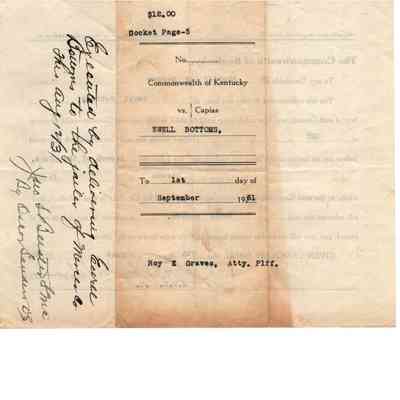 $12.00
Docket Page-5
No.
Commonwealth of Kentucky
vs. } Capias
EWELL BOTTOMS,
To 1st day of
September 1931
Roy E Graves, Atty. Plff.
Executed by delivering Ewell
Bottoms to the jailer of Mercer Co
This Aug 12/31
By